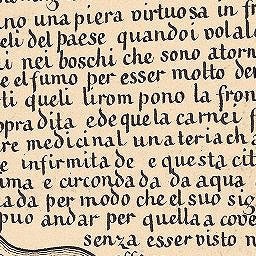 no una piera virtuosa in fr
eli del paese quando i volal
ii nei boschi che sono atorn
e el fumo per esser molto den
ti queli lirom pono la fron
pra dita e de que la carne i f
re medicinal una teriach a
e infirmita de e questa cit
ma e circonda da da aqua
ada per modo che el suo sig
puo andar per quella a cove
senza esser visto n